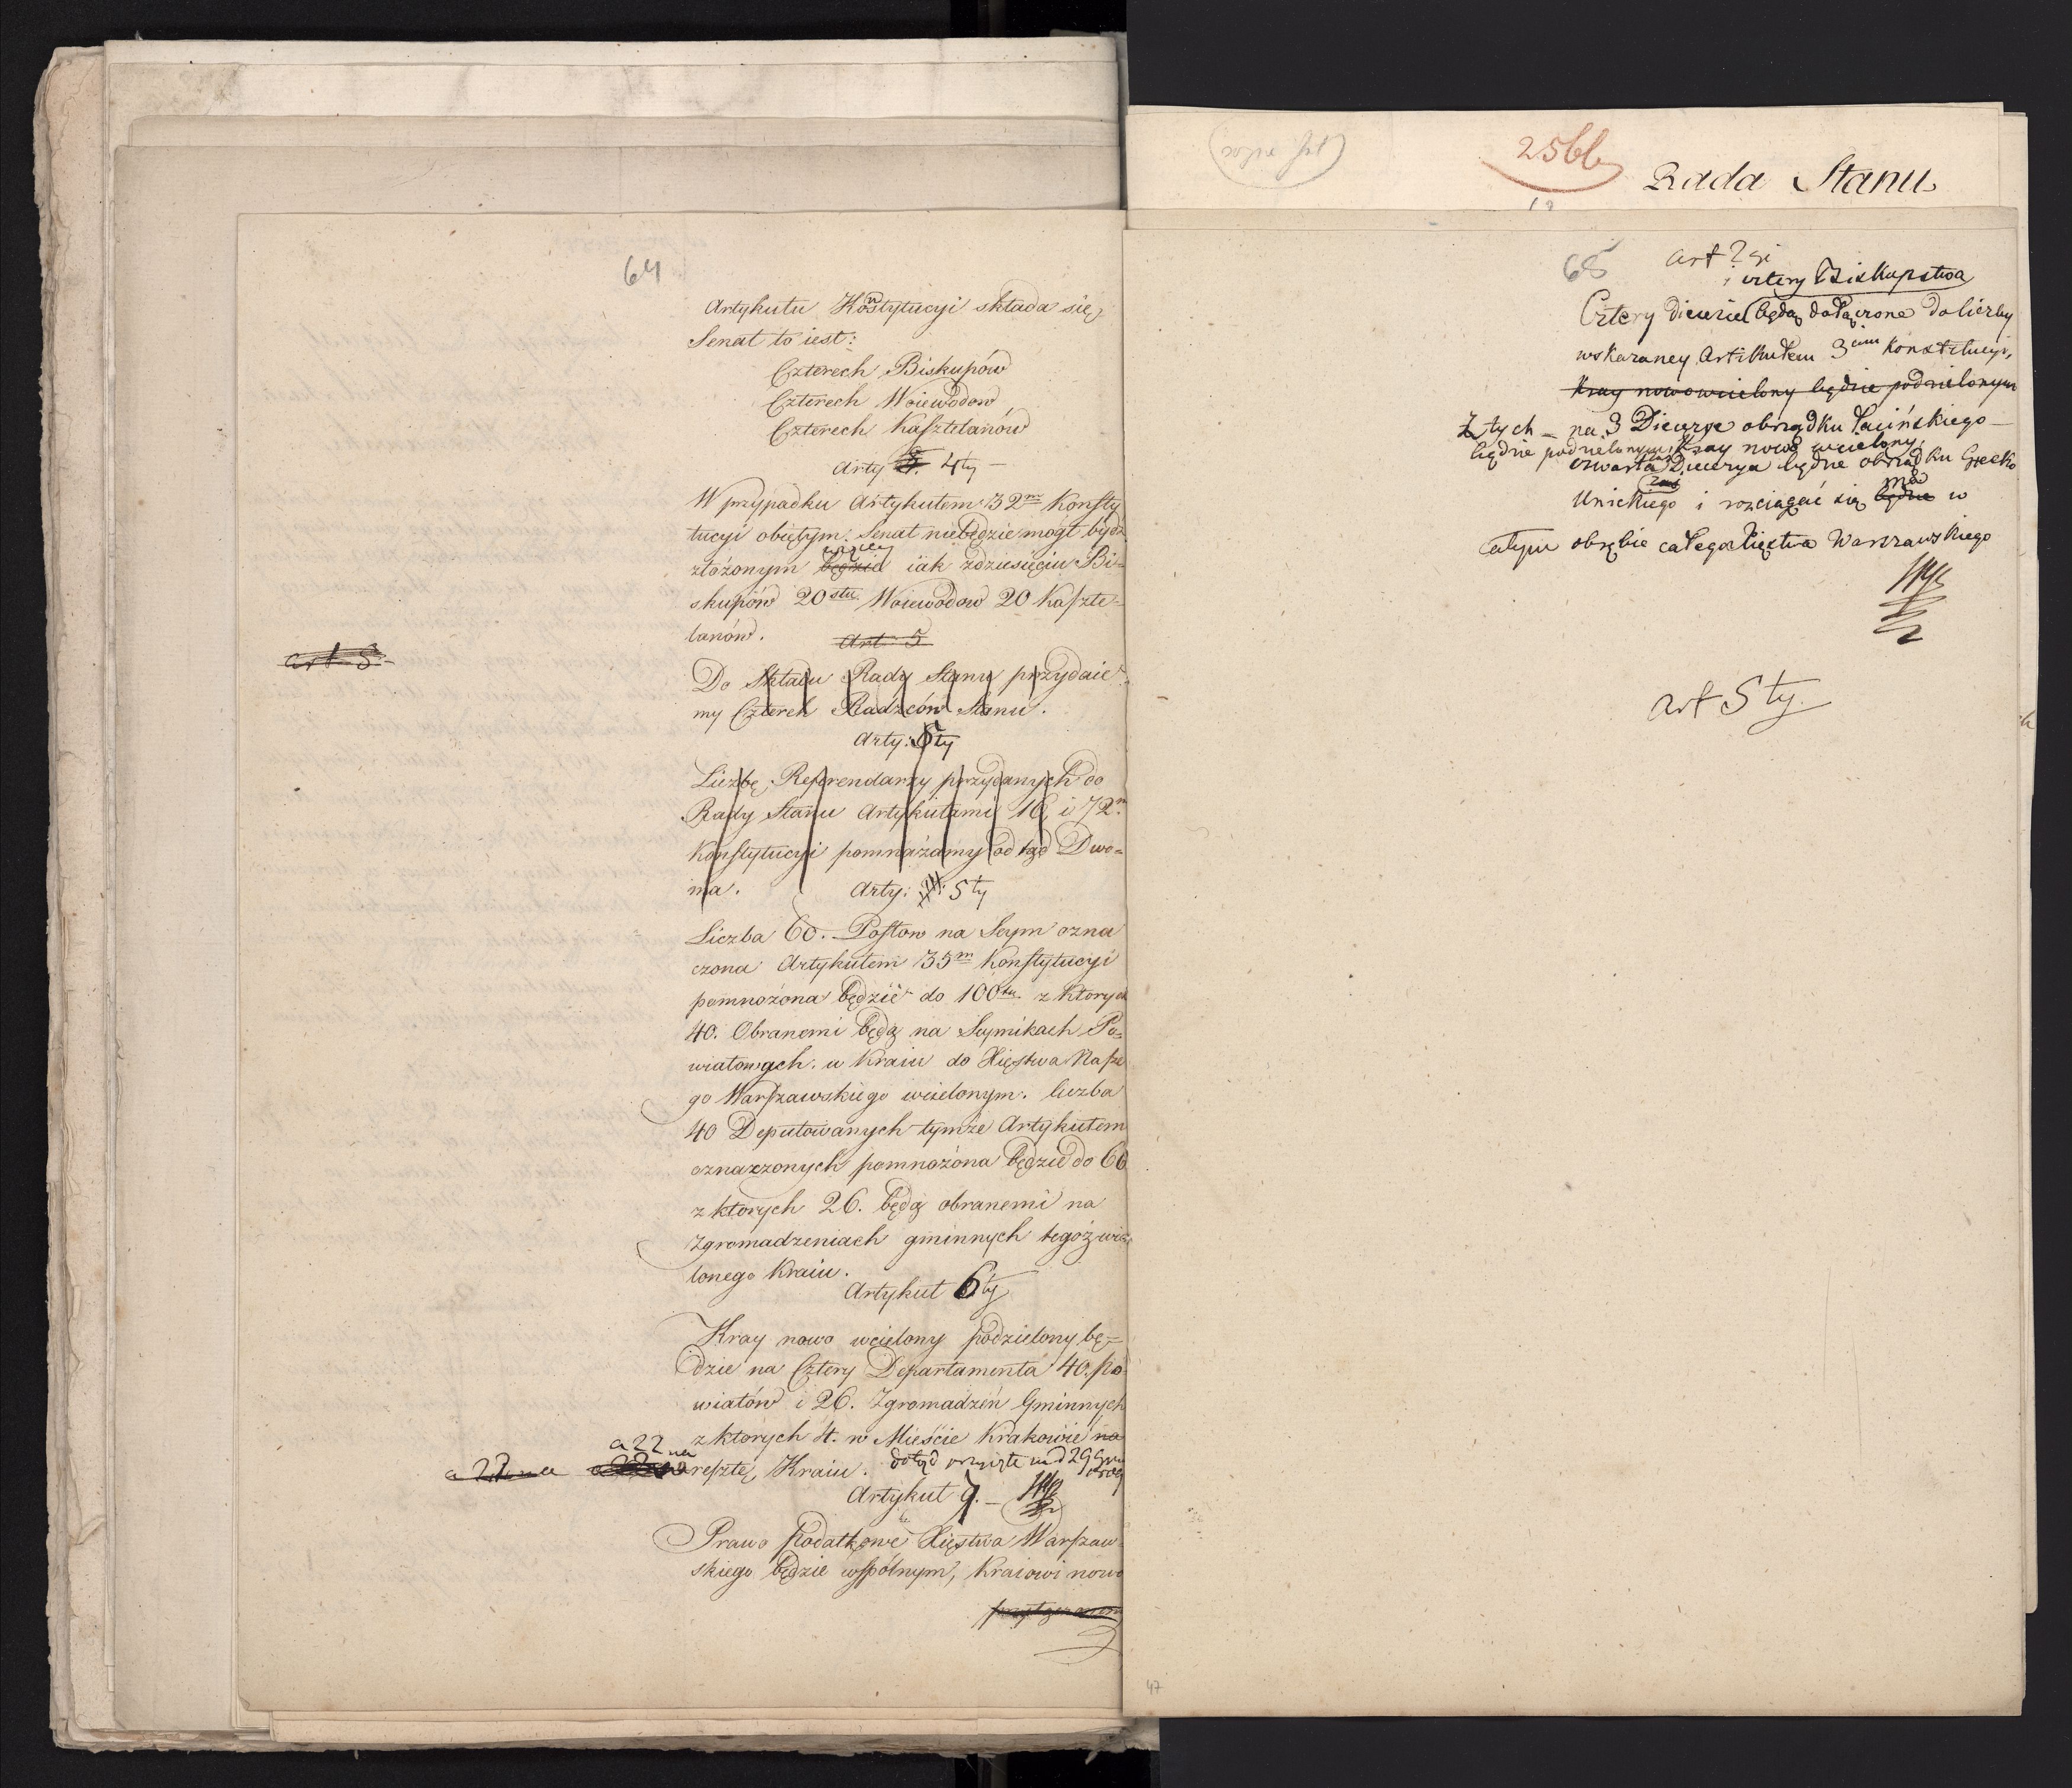 64
Artykułu Konstytucyi składa się
Senat to iest:
Czterech Biskupów
Czterech Woiewodow
Czterech Kasztelanów
Arty 4ty
W przypadku Artykułem 32m Konsty
tucyi obiętym. Senat niebędzie mógł bydź
złożonym będzie iak zdziesięciu Bi-
skupów 20stu Woiewodow 20 Kaszte-
lanów.
Art 5
art 5
Do Składu Rady Stanu przydaie-
my Czterech Radźców Stanu.
Arty: 6ty
Liczbę Referendarzy przydanych do
Rady Stanu Artykułami 16 i 72m
Konstytucyi pomnażamy od tąd Dwo=
ma.
Arty: 5ty
Liczba 60. Posłow na Seym ozna
czona Artykułem 35m Konstytucyi
pomnożona będzie do 100tu z ktorych
40. Obranemi będą na Seymikach Po=
wiatowych. w Kraiu do Xięstwa Nasze
go Warszawskiego wcielonym. liczba
40 Deputowanych tymże Artykułem
oznaczonych pomnożona będzie do 66
z ktorych 26. będą obranemi na
Zgromadzeniach gminnych tegoż wcie
lonego Kraiu.
Artykuł 6ty
Kray nowo wcielony podzielony bę=
dzie na Cztery Departamenta 40. po
wiatów i 26. Zgromadzeń Gminnych
z których 4. w Mieście Krakowie na
a 22 na
a 22 na resztę Kraiu. dotąd
Artykuł 7.
Prawo Podatkowe Xięstwa Warszaw
skiego będzie wspólnym, Kraiowi nowo
256b
Rada Stanu
68
art 2gi
i cztery Biskupstwa
Cztery Diecezie będą dołączone do liczby
wskazaney Artikułem 3cim Konstitucyi,
Kray nowo wcielony będzie podzielonym
Z tych na 3 Diecezye obrządku Łacińskiego
będzie podzielonym Kray nowo wcielony.
czwarta zaś Diecezya będzie obrządku Grecko
Unickiego i rozciągać się będzie ma w
całym obrębie całego Xięstwa Warszawskiego
art 5ty
47